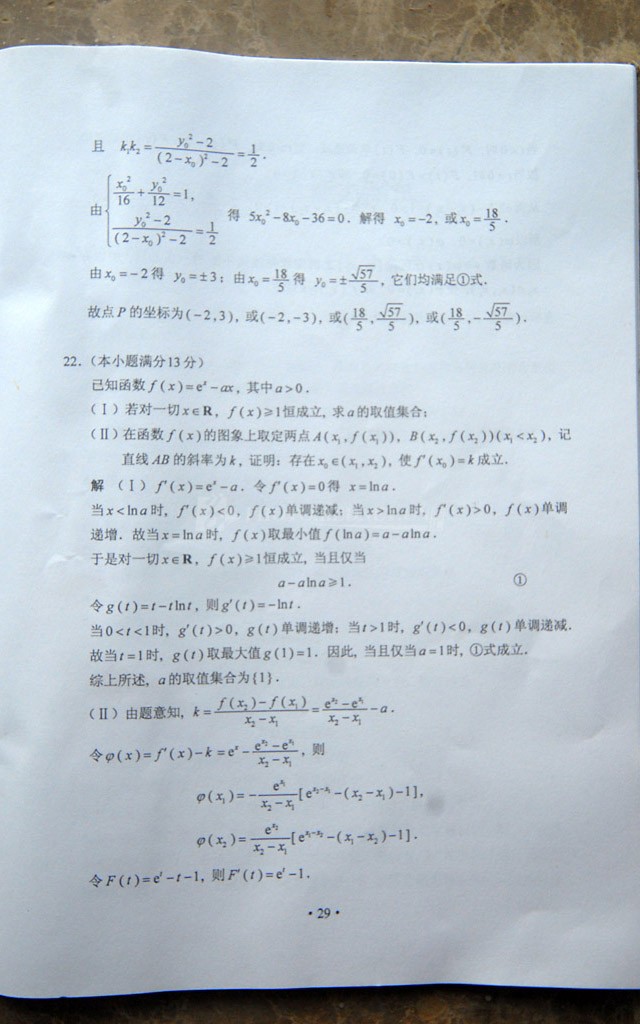 且 k₁k₂=\frac{y₀²-2}{(2-x₀)²-2}=\frac{1}{2}.
由{\frac{x₀²}{16}+\frac{y₀²}{12}=1, \frac{y₀²-2}{(2-x₀)²-2}=\frac{1}{2} 得 5x₀²-8x₀-36=0. 解得 x₀=-2, 或x₀=\frac{18}{5}.
由x₀=-2得 y₀=±3; 由x₀=\frac{18}{5}得 y₀=±\frac{√57}{5}, 它们均满足①式.
故点P的坐标为(-2,3), 或(-2,-3), 或(\frac{18}{5},\frac{√57}{5}), 或(\frac{18}{5},-\frac{√57}{5}).
22.(本小题满分13分)
已知函数f(x)=eˣ-ax, 其中a>0.
(Ⅰ)若对一切x∈R, f(x)≥1恒成立, 求a的取值集合;
(Ⅱ)在函数f(x)的图象上取定两点A(x₁,f(x₁)), B(x₂,f(x₂))(x₁<x₂), 记
直线AB的斜率为k, 证明: 存在x₀∈(x₁,x₂), 使f′(x₀)=k成立.
解 (Ⅰ) f′(x)=eˣ-a. 令f′(x)=0得 x=lna.
当x<lna时, f′(x)<0, f(x)单调递减; 当x>lna时, f′(x)>0, f(x)单调
递增. 故当x=lna时, f(x)取最小值f(lna)=a-alna.
于是对一切x∈R, f(x)≥1恒成立, 当且仅当
a-alna≥1. ①
令g(t)=t-tlnt, 则g′(t)=-lnt.
当0<t<1时, g′(t)>0, g(t)单调递增; 当t>1时, g′(t)<0, g(t)单调递减.
故当t=1时, g(t)取最大值g(1)=1. 因此, 当且仅当a=1时, ①式成立.
综上所述, a的取值集合为{1}.
(Ⅱ) 由题意知, k=\frac{f(x₂)-f(x₁)}{x₂-x₁}=\frac{e^{x₂}-e^{x₁}}{x₂-x₁}-a.
令φ(x)=f′(x)-k=eˣ-\frac{e^{x₂}-e^{x₁}}{x₂-x₁}, 则
φ(x₁)=-\frac{e^{x₁}}{x₂-x₁}[e^{x₂-x₁}-(x₂-x₁)-1],
φ(x₂)=\frac{e^{x₂}}{x₂-x₁}[e^{x₁-x₂}-(x₁-x₂)-1].
令F(t)=eᵗ-t-1, 则F′(t)=eᵗ-1.
·29·